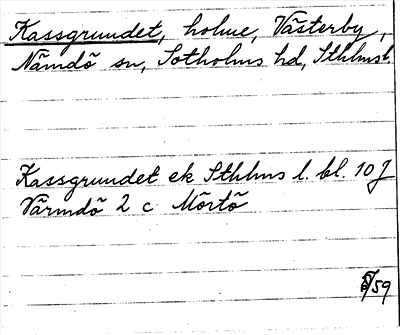 Kassgrundet, holme, Västerby,
Nämdö sn, Sotholms hd, Sthlmsl.
Kassgrundet ek Sthlms l. bl. 10 J
Värmdö 2 c Mörtö
/59